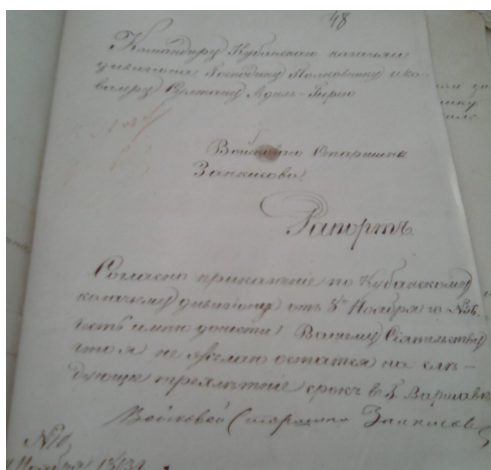 48
Командиру Кубанскаго казачьяго
дивизiона Господину Полковнику и ка-
валеру Султану Адиль-Гирею
Войсковаго Старшины
Занкисова!
Рапортъ.
Согласно приказанiю по Кубанскому
казачьему дивизiону отъ 8 Ноября за №
имѣю донести Вашему Сiятельству
что я не желаю остатся на слѣ-
дующее трехлѣтнiе срокъ въ г. Варшавѣ
Войсковой Старшина Занкисовъ
№
Ноября